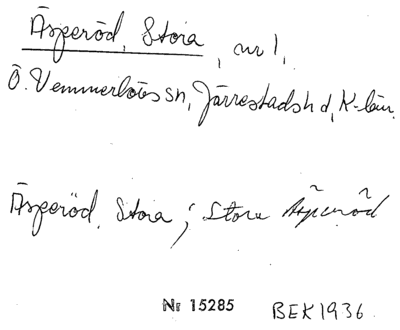 Äsperöd, Stora, nr 1,
Ö. Vemmerlövs sn, Järrestads hd, K-län.
Äsperöd, Stora ; Stora Äsperöd
Nr 15285 BEK 1936.